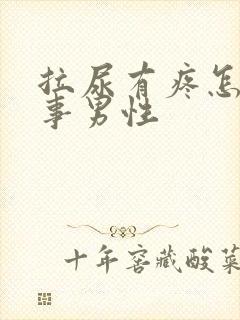 拉尿有疼怎
事男性
十年窖藏酸菜